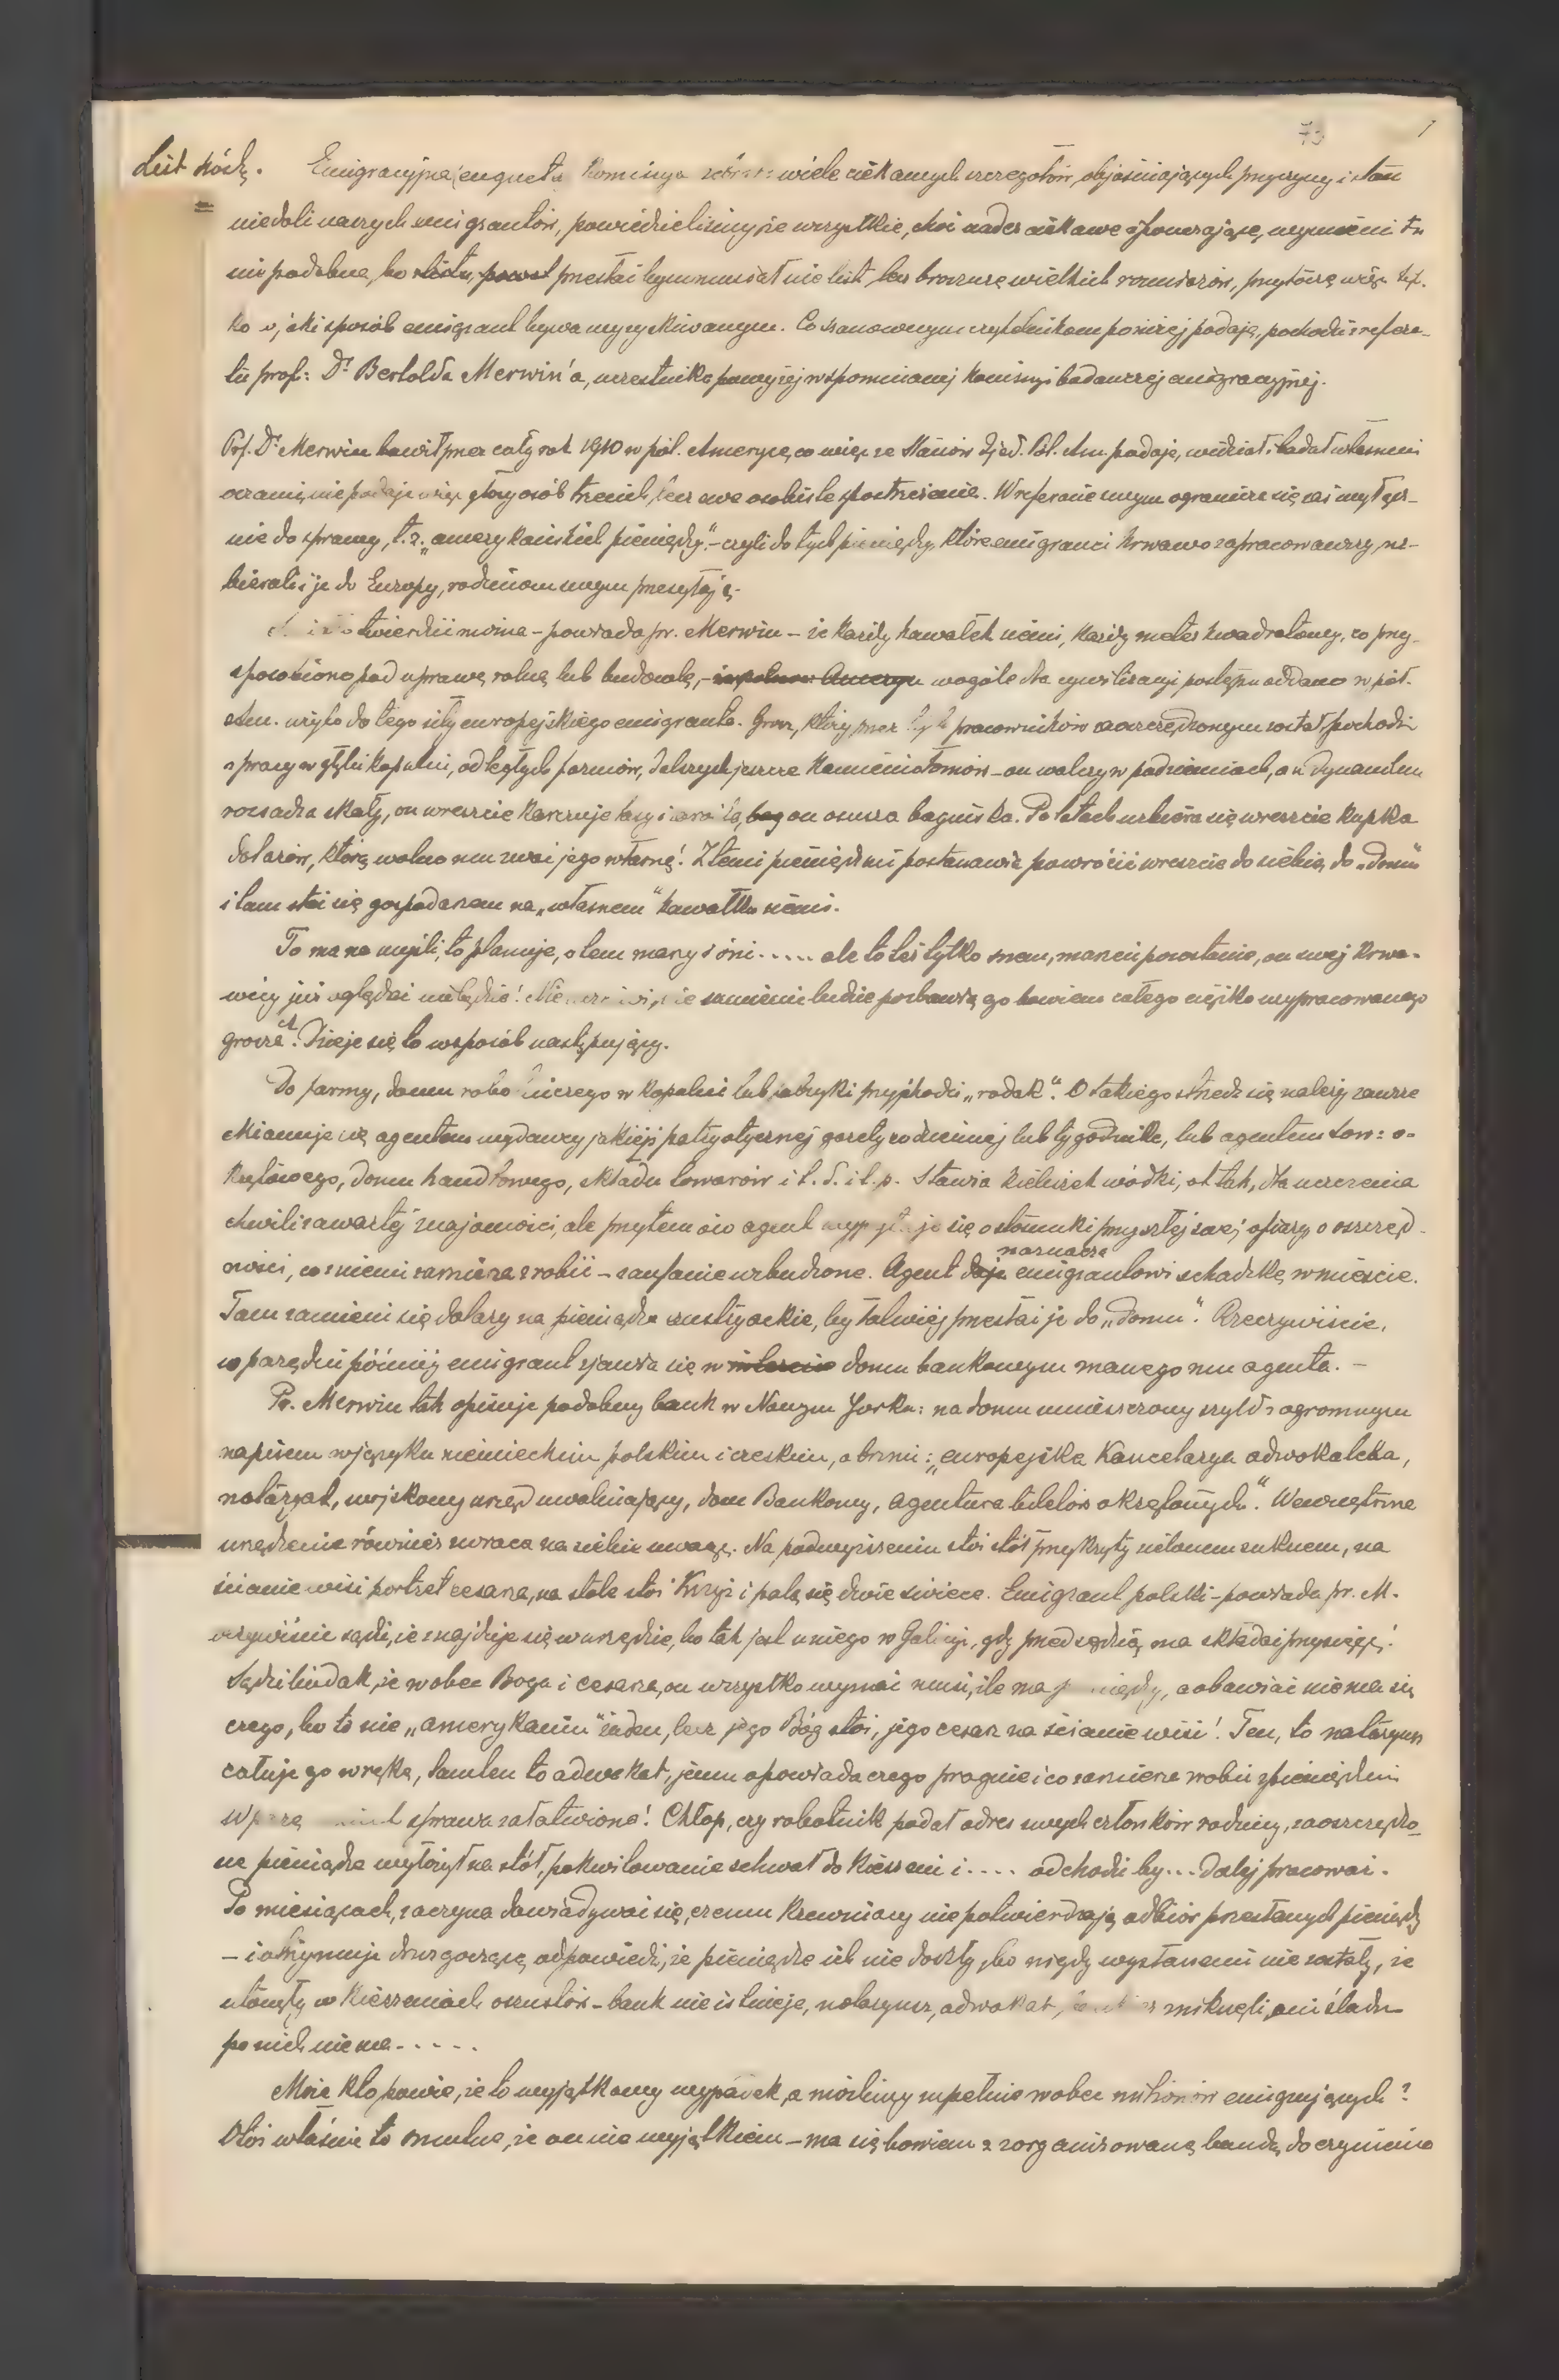 73 1
List szósty. Emigracyjna enqueta Komisya wiele ciekawych szczegółów, objaśniających przyczyny i stan
niedoli naszych emigrantów, powiedzieliśmy że wszystkie, choć nader ciekawe i pouczające, wymienić tu
nie podobna, bo przestać bym musiał nie list, lecz broszurę wielkich rozmiarów, przytoczę więc tyl-
ko w jaki sposób emigrant bywa wyzyskiwanym. Co szanownym czytelnikom poniżej podaję, pochodzi z refera-
tu prof: Dr Bertolda Merwin'a, uczestnika powyżej wspomnianej Komisyi badawczej emigracyjnej.
Prf. Dr Merwin bawił przez cały rok 1910 w pół. Ameryce, co więc ze Stanów Zjed. Pół. Am. podaje, widział i badał własnemi
oczami, nie podaje więc głosy osób trzecich, lecz swe osobiste spostrzeżenie. W referacie swym ogranicza się zaś wyłącz-
nie do sprawy, t. z. „amerykańskich pieniędzy" – czyli do tych pieniędzy, które emigranci krwawo zapracowawszy, uz-
bierali i je do Europy, rodzinom swym przesyłają.
twierdzić można – powiada pr. Merwin – że każdy kawałek ziemi, każdy meter kwadratowy, co przy-
sposobiono pod uprawę rolną lub budowlę, – wogóle dla cywilizacyi postępu oddano w pół.
Am. użyto do tego siły europejskiego emigranta. Grosz, który przez tych pracowników zaoszczędzonym został, pochodzi
z pracy w głębi kopalni, odległych farmów, dalszych jeszcze kamieniołomów – on walczy w podziemiach, on dynamitem
rozsadza skały, on wreszcie karczuje lasy i zarośla, bag on osusza bagniska. Po latach uzbiera się wreszcie kupka
dolarów, którą wolno mu zwać jego własną! Z temi pieniędzmi postanawia powrócić wreszcie do siebie, do „domu"
i tam stać się gospodarzem na „własnem" kawałku ziemi.
To ma na myśli, to planuje, o tem marzy i śni..... ale to też tylko snem, marzeń pozostanie, on swej krwa-
wicy już oglądać nie będzie! sumieniu ludzie pozbawią go bowiem całego ciężko wypracowanego
grosza. Dzieje się to w sposób następujący.
Do farmy, domu robotniczego w kopalni lub fabryki przychodzi „rodak". O takiego strzedz się należy zawsze
Mianuje się agentem wydawcy jakiejś patryotycznej gazety codziennej lub tygodnika, lub agentem tow: o-
krętowego, domu handlowego, składu towarów i t. d. i t. p. Stawia kieliszek wódki, ot tak, dla uczczenia
chwili zawartej znajomości, ale przytem ów agent wypytuje się o stosunki przyszłej swej ofiary, o oszczęd-
ności, co z niemi zamierza zrobić – zaufanie wzbudzone. Agent daje naznacza emigrantowi schadzkę w mieście.
Tam zamieni się dolary na pieniądze austryackie, by łatwiej przesłać je do „domu". Rzeczywiście,
w parę dni później emigrant zjawia się w mieście domu bankowym znanego mu agenta. –
Pr. Merwin tak opisuje podobny bank w Nowym Jorku: na domu umieszczony szyld z ogromnym
napisem w języku niemieckim polskim i czeskim, a brzmi: „europejska Kancelarya adwokacka,
notaryat, wojskowy urząd uwalniający, dom Bankowy, agentura biletów okrętowych". Wewnętrzne
urządzenie również zwraca na siebie uwagę. Na podwyższeniu stoi stół przykryty zielonem suknem, na
ścianie wisi portret cesarza, na stole stoi Krzyż i palą się dwie świece. Emigrant polski – powiada pr. M.
oczywiście sądzi, że znajduje się w urzędzie, bo tak jest u niego w Galicyi, gdy przed sędzią ma składać przysięgę!
Sądzi biedak, że wobec Boga i cesarza, on wszystko wyznać musi, ile ma pieniędzy, a obawiać nie ma się
czego, bo to nie „amerykanin" żaden, lecz jego Bóg stoi, jego cesarz na ścianie wisi! Ten, to notaryusz
całuje go w rękę, tamten to adwokat, jemu opowiada czego pragnie i co zamierza zrobić z pieniędzmi
W parę minut sprawa załatwiona! Chłop, czy robotnik podał adres swych członków rodziny, zaoszczędzo-
ne pieniądze wyłożył na stół, pokwitowanie schował do kieszeni i.... odchodzi by... dalej pracować.
Po miesiącach, zaczyna dowiadywać się, czemu krewniacy nie potwierdzają odbiór przesłanych pieniędzy
– i otrzymuje druzgoczącą odpowiedź, że pieniądze ich nie doszły, bo nigdy wysłanemi nie zostały, że
utonęły w kieszeniach oszustów – bank nie istnieje, notaryusz, adwokat, bankier zniknęli, ani śladu
po nich nie ma.....
Może kto powie, że to wyjątkowy wypadek, a możliwy zupełnie wobec milionów emigrujących?
Otóż właśnie to smutne, że on nie wyjątkiem – ma się bowiem z zorganizowaną bandą do czynienia